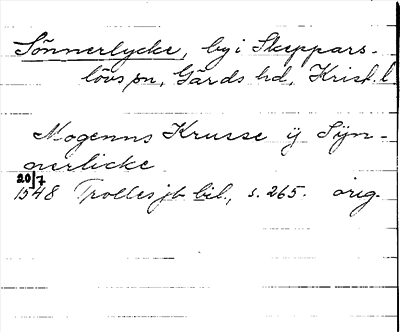 Sönnerlycke, by i Skeppars-
lövs sn, Gärds hd, Krist. l
Mogenns Krusse ij Sijn-
nerlicke
20/7
1548 Trolles jb bil., s. 265. orig.